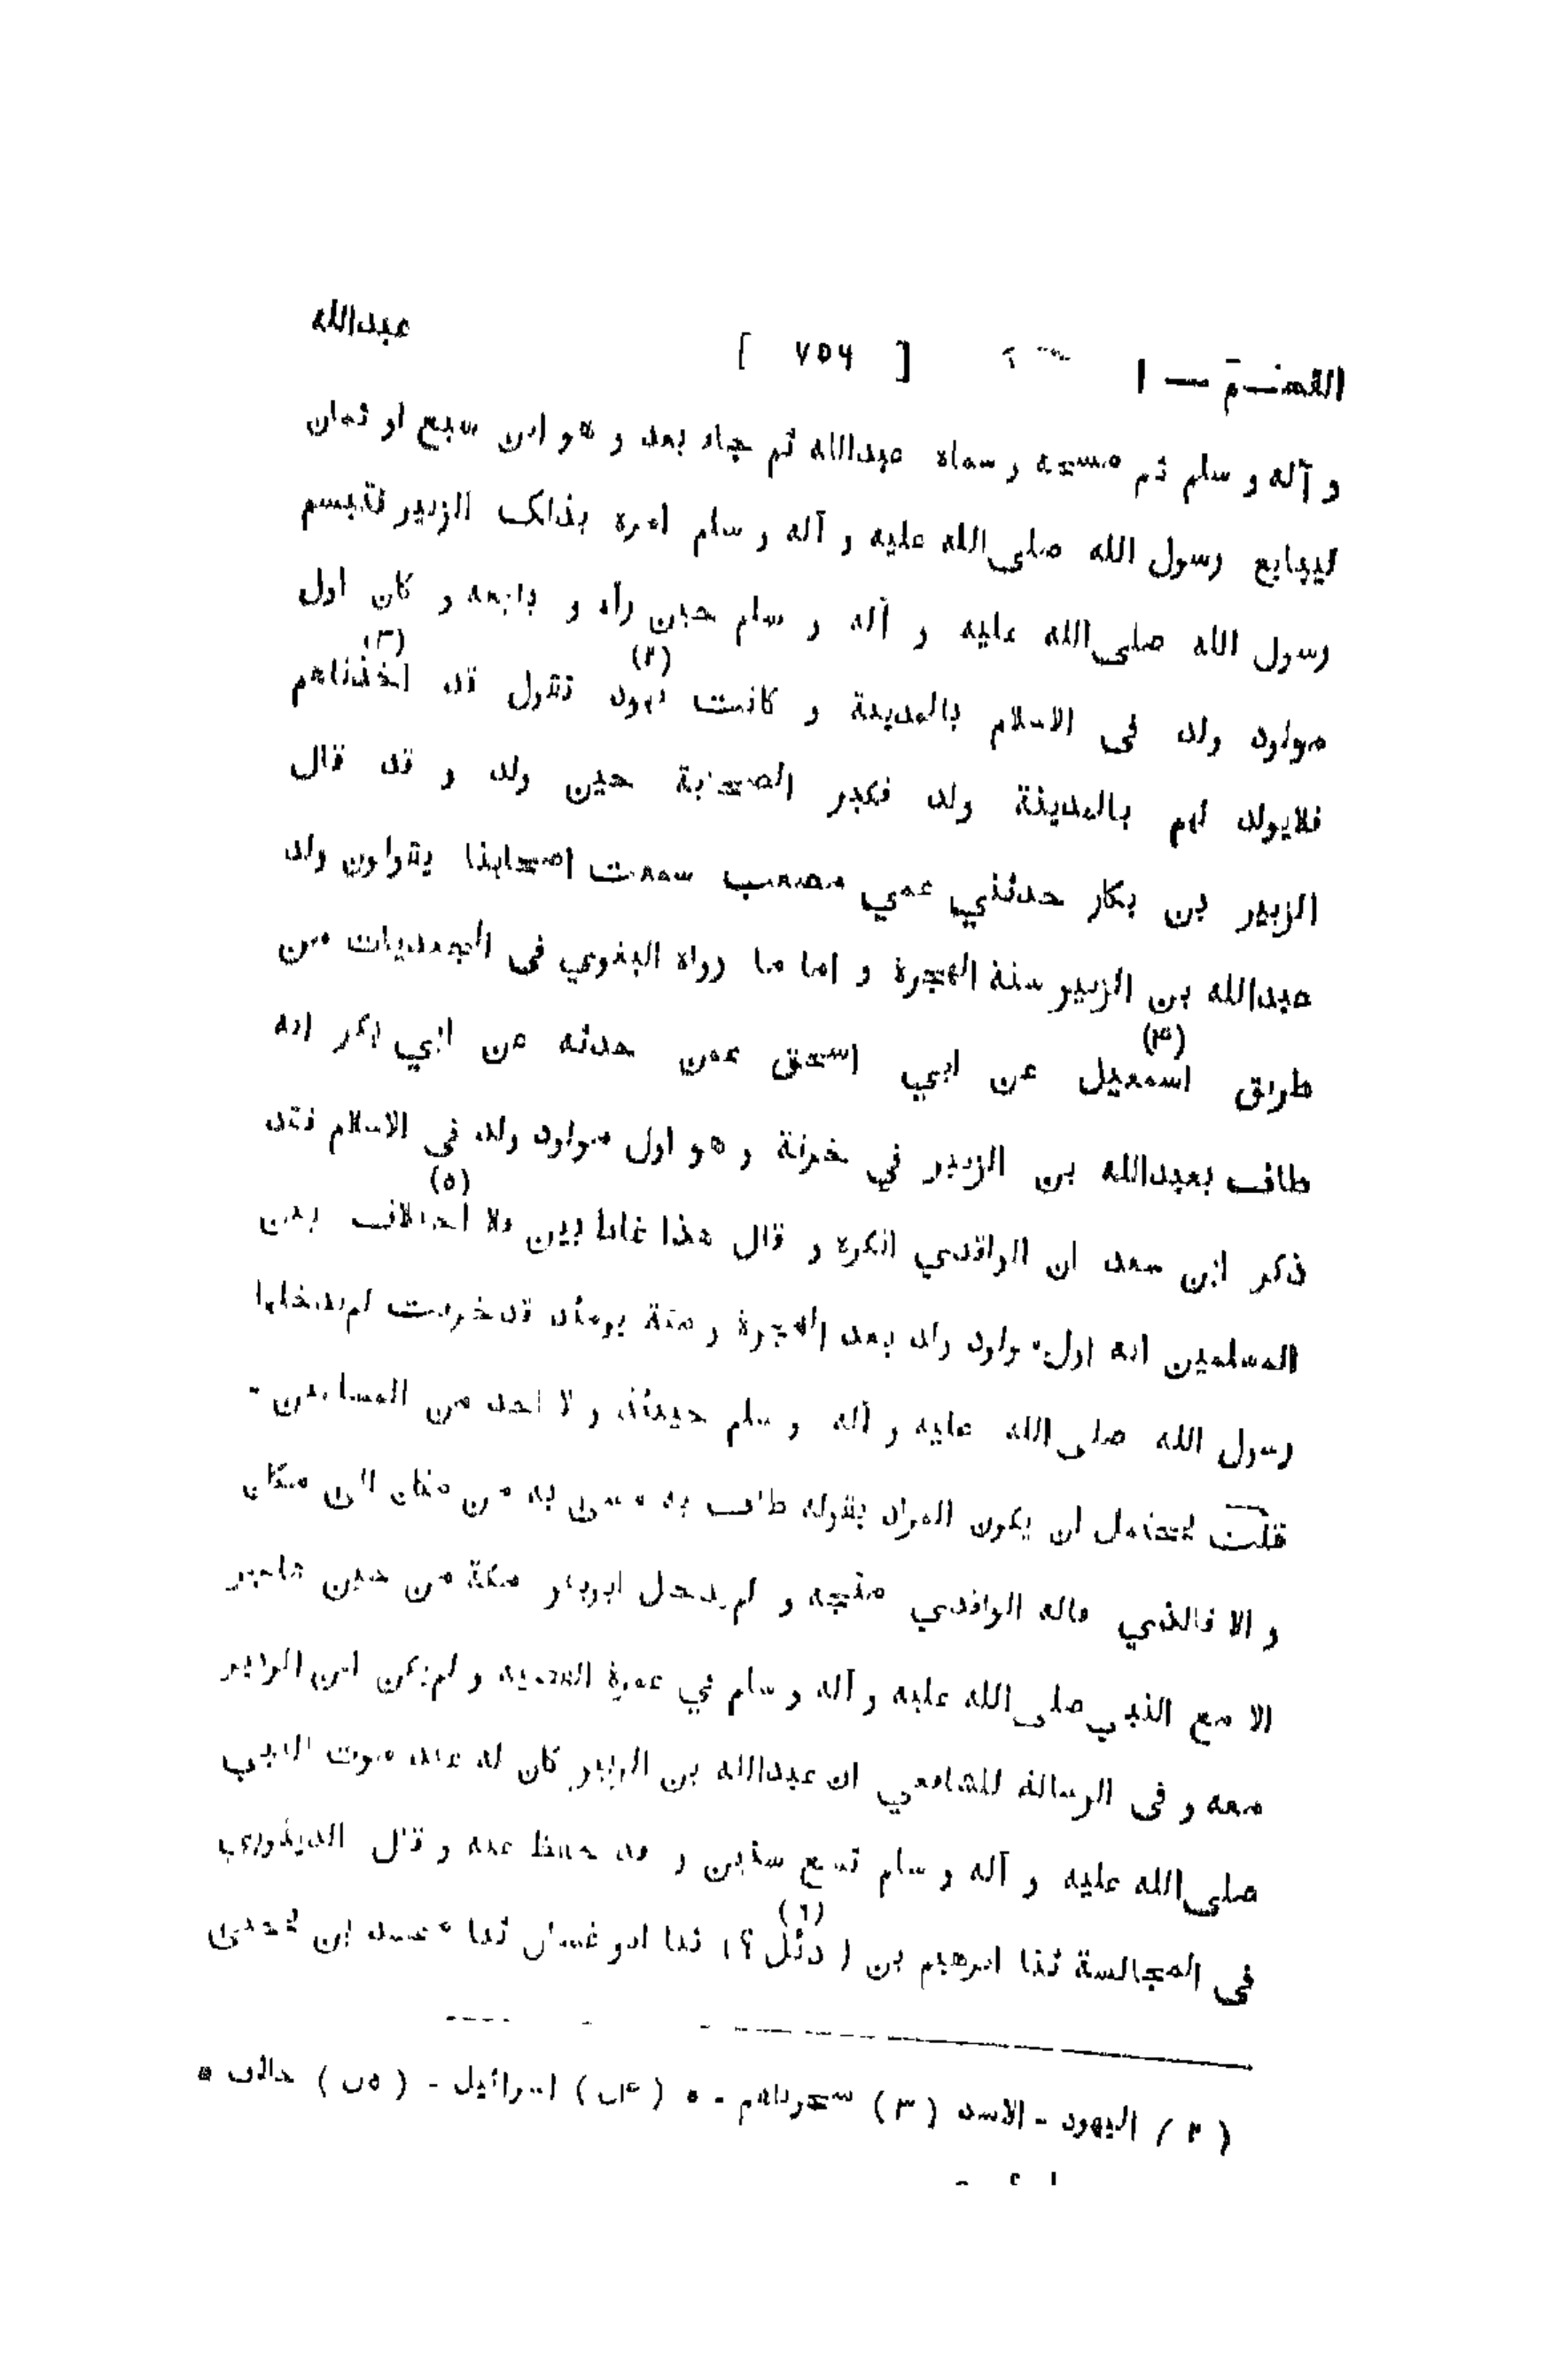 القسم — ١ [ ٧٥٦ ] عبدالله
و آله و سلم ثم مسحه و سماه عبدالله ثم جاء بعد و هو ابن سبع او ثمان
ليبايع رسول الله صلى الله عليه و آله و سلم امره بذلك الزبير فتبسم
رسول الله صلى الله عليه و آله و سلم حين رآه و بايعه و كان اول
مولود ولد فى الاسلام بالمدينة و كانت يهود (٢) تقول قد اخذناهم (٣)
فلايولد لهم بالمدينة ولد فكبر الصحابة حين ولد و قد قال
الزبير بن بكار حدثني عمي مصعب سمعت اصحابنا يقولون ولد
عبدالله بن الزبير سنة الهجرة و اما ما رواه البغوي فى الجعديات من
طريق اسمعيل (۴) عن ابي اسحق عمن حدثه عن ابي بكر انه
طاف بعبدالله بن الزبير في خرقة و هو اول مولود ولد فى الاسلام فقد
ذكر ابن سعد ان الواقدي انكره و قال هذا غلط بين فلا اختلاف (٥) بين
المسلمين انه اول مولود ولد بعد الهجرة و مكة يومئذ قد خربت لم يدخلها
رسول الله صلى الله عليه و آله و سلم حينئذ و لا احد من المسلمين -
قلت يحتمل ان يكون المراد بقوله طاف به مشى به من مكان الى مكان
و الا فالذي قاله الواقدي متجه و لم يدخل ابوبكر مكة من حين هاجر
الا مع النبي صلى الله عليه و آله و سلم في عمرة القضية و لم يكن ابن الزبير
معه و فى الرسالة للشافعي ان عبدالله بن الزبير كان له عند موت النبي
صلى الله عليه و آله و سلم تسع سنين و قد حفظ عنه و قال الدينوري
فى المجالسة ثنا ابرهيم بن ( دئل ؟) (٦) ثنا ابو غسان ثنا محمد بن يحيى
( ٢ ) اليهود - الاسد ( ٣ ) سحرناهم - ه ( ۴ ) اسرائيل - ( ٥ ) خلاف ه